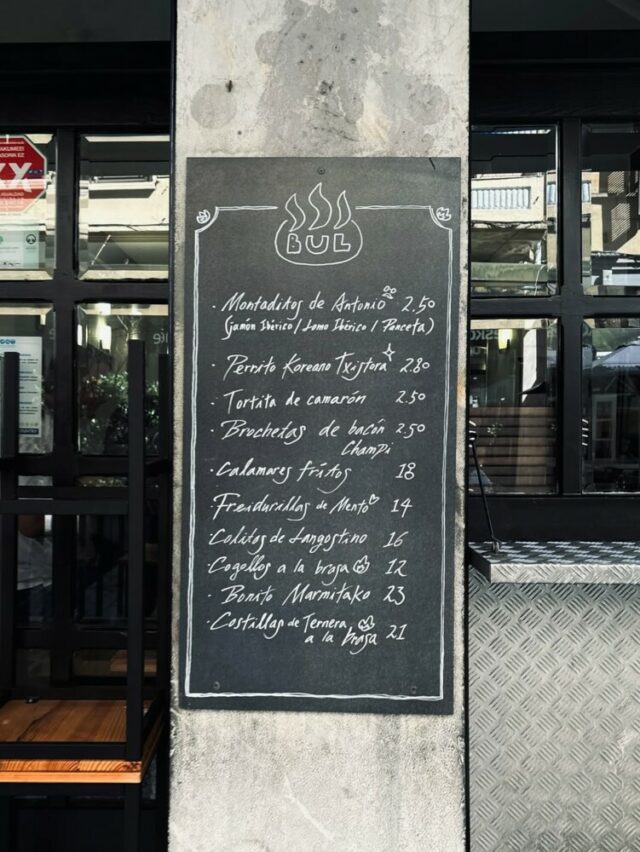 XX
BUL
· Montaditos de Antonio 2.50
(Jamón Ibérico / Lomo Ibérico / Panceta)
· Perrito Koreano Txistorra 2.80
· Tortita de camarón 2.50
· Brochetas de bacón 2.50
Champi
· Calamares fritos 18
· Freidurillas de Mento 14
Colitos de Langostino 16
Cogollos a la brasa 12
· Bonito Marmitako 23
· Costillas de Ternera
a la brasa 21